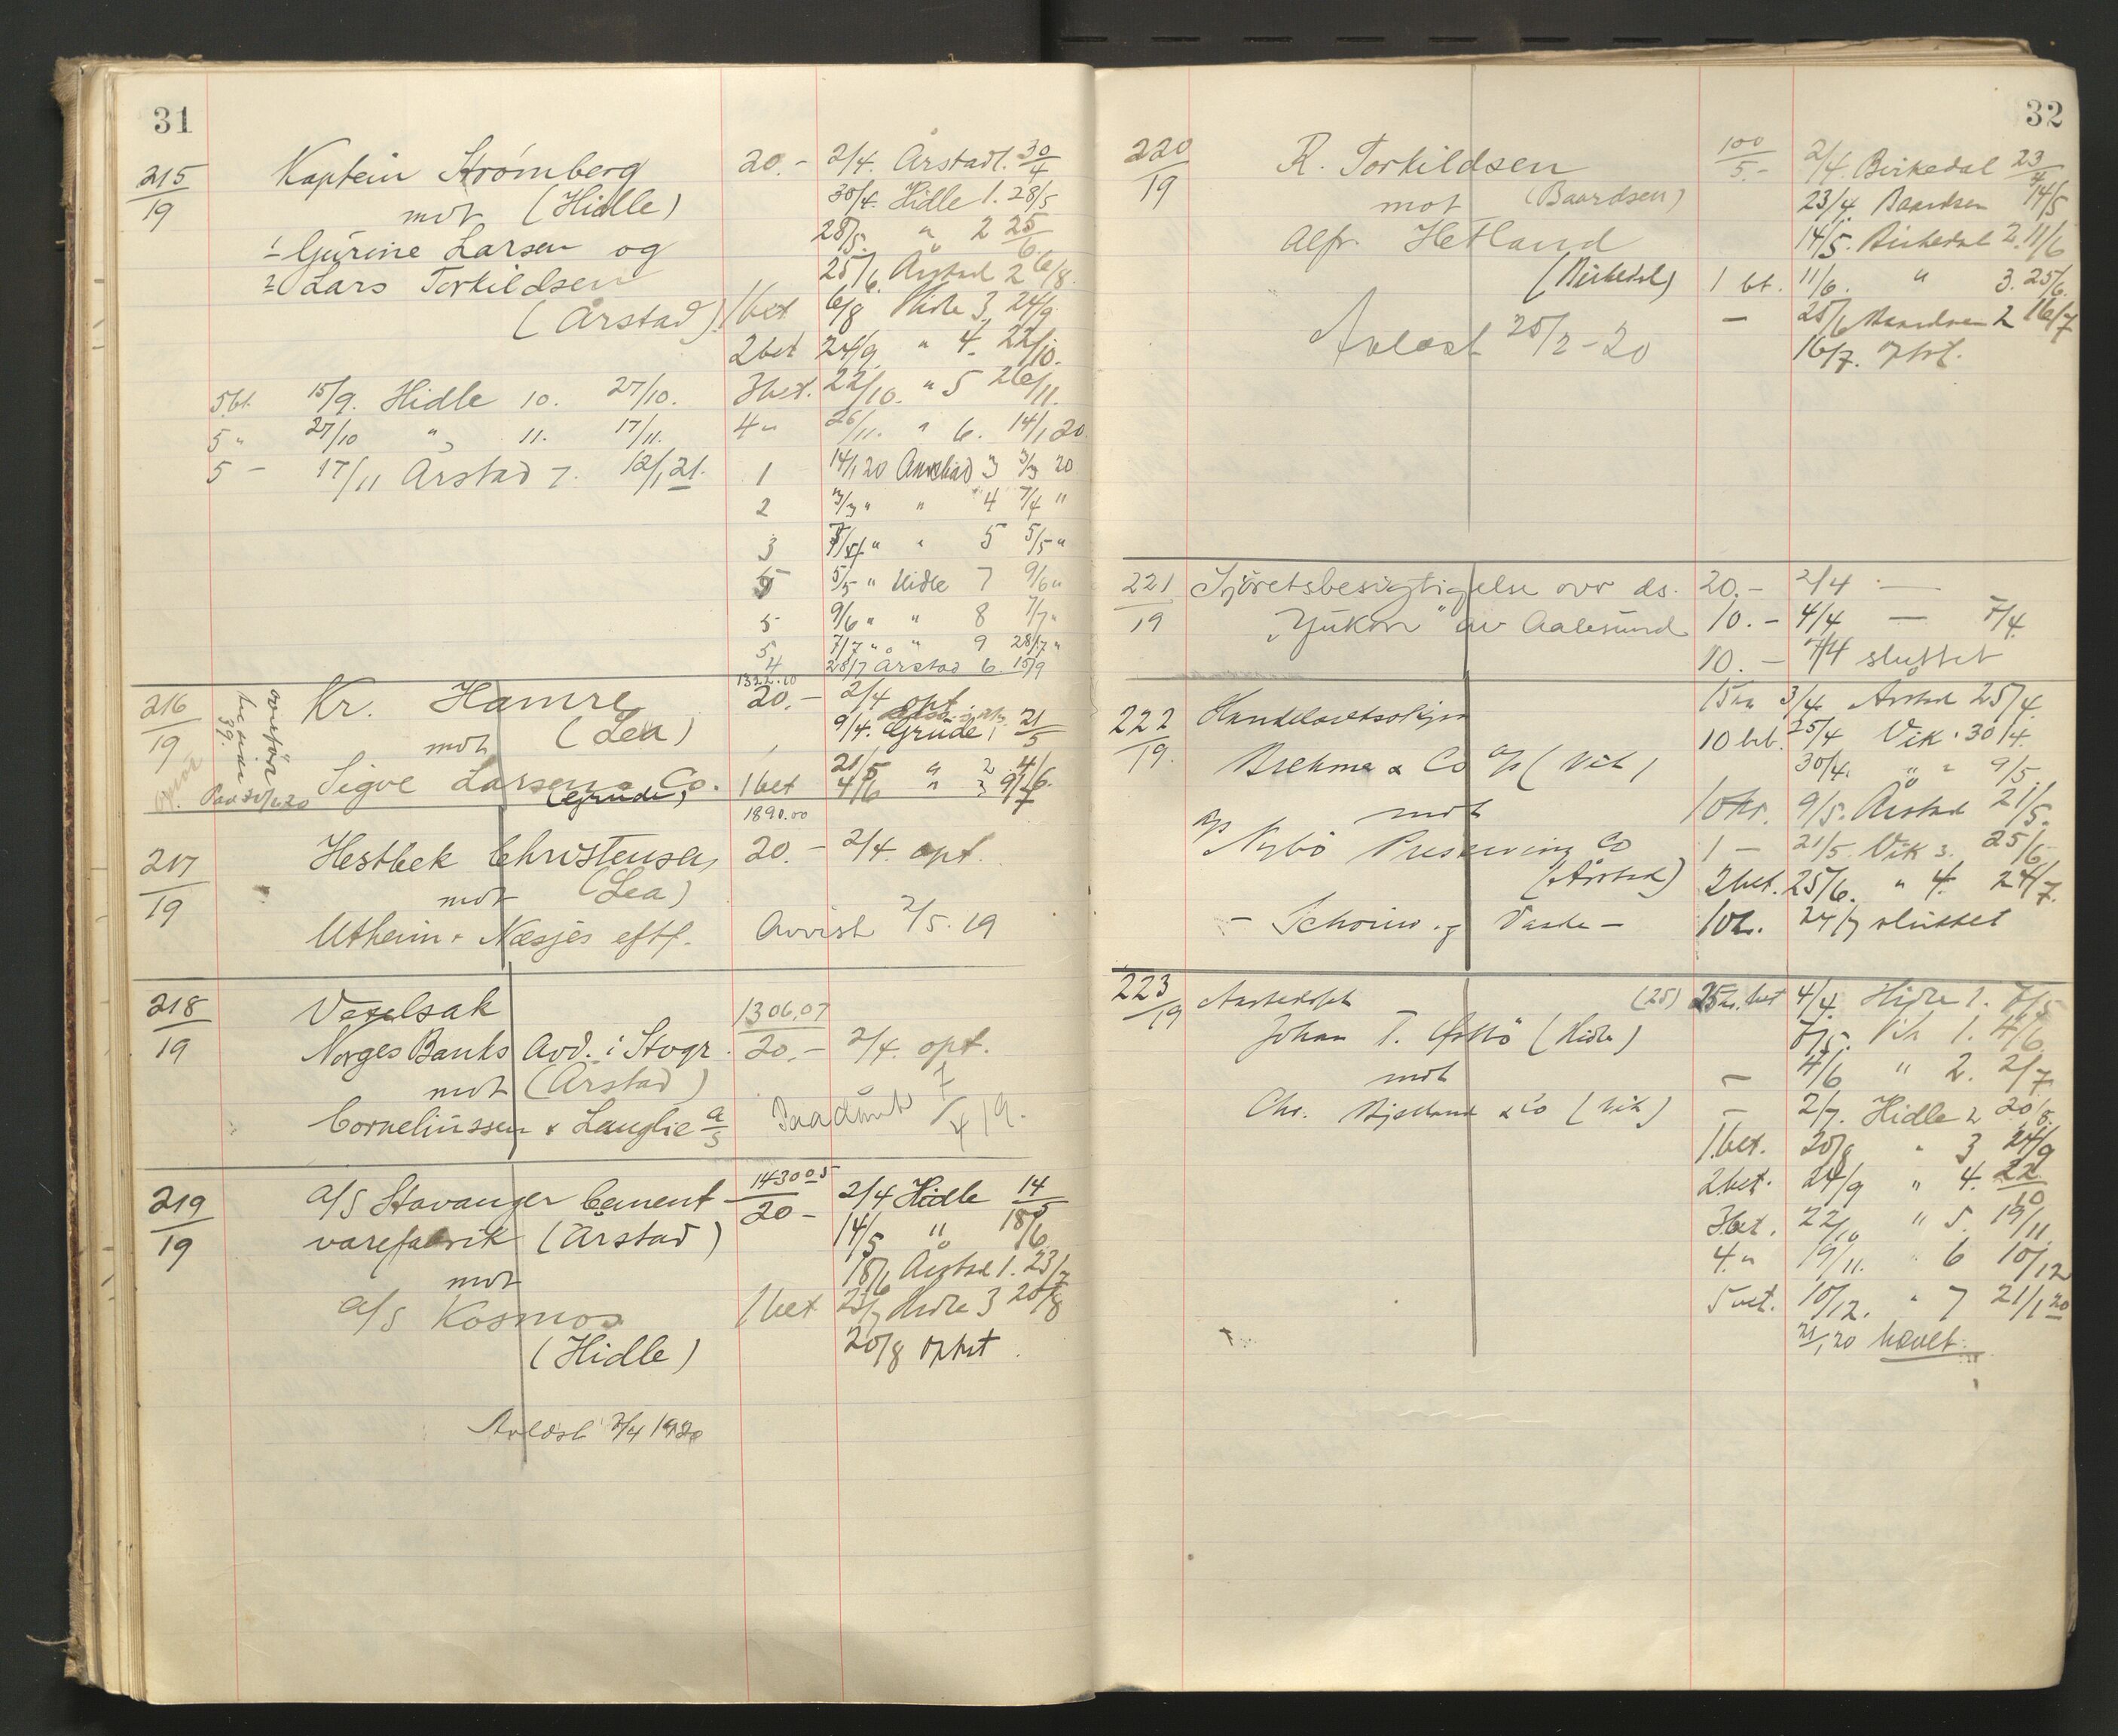 31
215/19 Kaptein Strømberg 20.- 2/4. Årstad 1. 30/4
mot (Hidle) 30/4. Hidle 1. 28/5
1 Gurine Larsen og 28/5. " 2 25/6
2 Lars Torkildsen 25/6. Årstad 2 6/8.
(Årstad) 1 bet 6/8 Hidle 3. 24/9
2 bet 24/9. " 4. 22/10.
5 bt. 15/9. Hidle 10. 27/10. 3 bet. 22/10. " 5 26/11.
5 " 27/10 " 11. 17/11. 4 " 26/11. " 6. 14/1 20.
5 - 17/11 Årstad 7. 12/1 21. 1 14/1 20 Aarstad 3 3/3 20
2 3/3 " " 4 7/4 "
3 7/4 " " 5 5/5 "
5 5/5 " Hidle 7 9/6 "
5 9/6 " " 8 7/7 "
5 7/7 " " 9 28/7 "
4 28/7 Årstad 6. 15/9
1322.10
216/19 Kr. Hamre 20.- 2/4 opt.
mot (Lea) 9/4. Grude 1 21/5
21/5 " 2. 4/6
Sigve Larsen & Co. 1 bet 4/6 " 3 9/7
(Grude)
1890.00
217/19 Hestbek Christensen 20.- 2/4. opt.
mot (Lea)
Utheim & Næsjes eftf. Avvist 2/5.19
218/19 Vexelsak 1306,07
Norges Banks Avd. i Stvgr. 20.- 2/4. opt.
mot (Årstad)
Corneliussen & Langlie a/s 7/4 19.
1430.05
219/19 A/S Stavanger Cement- 20- 2/4 Hidle 14/5
varefabrik (Årstad) 14/5 " 18/6
mot 18/6 Årstad 1. 23/7
A/S Kosmos 1 bet 23/7 Hidle 3 20/8
(Hidle) 20/8 opt
Avlöst 1920
32
220/19 R. Torkildsen 100/5- 2/4. Birkedal 23/4
mot (Baardsen) 23/4. Baardsen 14/5
Alfr. Hetland 14/5. Birkedal 2. 11/6
(Birkedal) 1 bt. 11/6. " 3. 25/6.
- 25/6 Baardsen 2 16/7
Avlöst 25/2-20 16/7.
221/19 Sjöretsbesigtigelse ovr ds. 20.- 2/4 -
"Yukon" av Aalesund 10.- 4/4 - 7/4
10.- 7/4 sluttet
222/19. Handelsretssaken 15 kr 3/4 Årstad 25/4.
10 bet. 25/4 Vik 30/4.
Brekma & Co A/S (Vik) 30/4. " " 9/5.
mot 10 kr. 9/5. Årstad 21/5.
A/S Nybö Preserving Co 1 - 21/5. Vik 3. 25/6
(Årstad) 2 bet. 25/6. " 4. 24/7.
24/7 sluttet
223/19 (25) 25 kr. bet 4/4. Hidle 1. 7/5
Johan T. (Hidle) 7/5. Vik 1. 4/6.
mot - 4/6 " 2. 2/7
Chr. Bjelland & Co (Vik) - 2/7. Hidle 2 20/8.
1 bet. 20/8 " 3 24/9
2 bet. 24/9 " 4. 22/10
3 bet. 22/10 " 5. 19/11.
4. " 19/11. " 6 10/12
5 bet. 10/12. " 7 21/1 20
21/1 20 hævet.